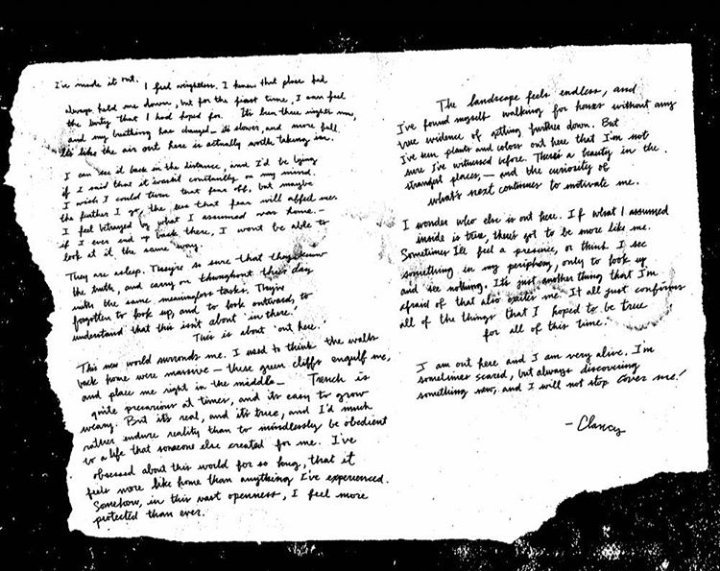 I've made it out. I feel weightless. I knew that place had
always held me down, but for the first time, I can feel
the unity that I had hoped for. It's been three nights now,
and my breathing has changed - it's slower, and more full.
It's like the air out here is actually worth taking in.
I can see it back in the distance, and I'd be lying
if I said that it wasn't constantly on my mind.
I wish I could turn that fear off, but maybe
the further I go, the less that fear will affect me.
I feel betrayed by what I assumed was home. -
if I ever end up back there, I won't be able to
look at it the same way.
They are asleep. They're so sure that they know
the truth, and carry on throughout their day
with the same meaningless tasks. They've
forgotten to look up, and to look outward, to
understand that this isn't about 'in there.'
This is about 'out here.'
This new world surrounds me. I used to think the walls
back home were massive — these green cliffs engulf me,
and place me right in the middle — Trench is
quite precarious at times, and it's easy to grow
weary. But it's real, and it's true, and I'd much
rather endure reality than to mindlessly be obedient
to a life that someone else created for me. I've
obsessed about this world for so long, that it
feels more like home than anything I've experienced.
Somehow, in this vast openness, I feel more
protected than ever.
The landscape feels endless, and
I've found myself walking for hours without any
true evidence of getting further down. But
I've seen plants and colors out here that I'm not
sure I've witnessed before. There's a beauty in the
strangest places, — and the curiosity of
what's next continues to motivate me.
I wonder who else is out here. If what I assumed
inside is true, there's got to be more like me.
Sometimes I'll feel a presence, or think I see
something in my periphery, only to look up
and see nothing. It's just another thing that I'm
afraid of that also excites me. It all just confirms
all of the things that I hoped to be true
for all of this time.
I am out here and I am very alive. I'm
sometimes scared, but always discovering
something new, and I will not stop
- Clancy